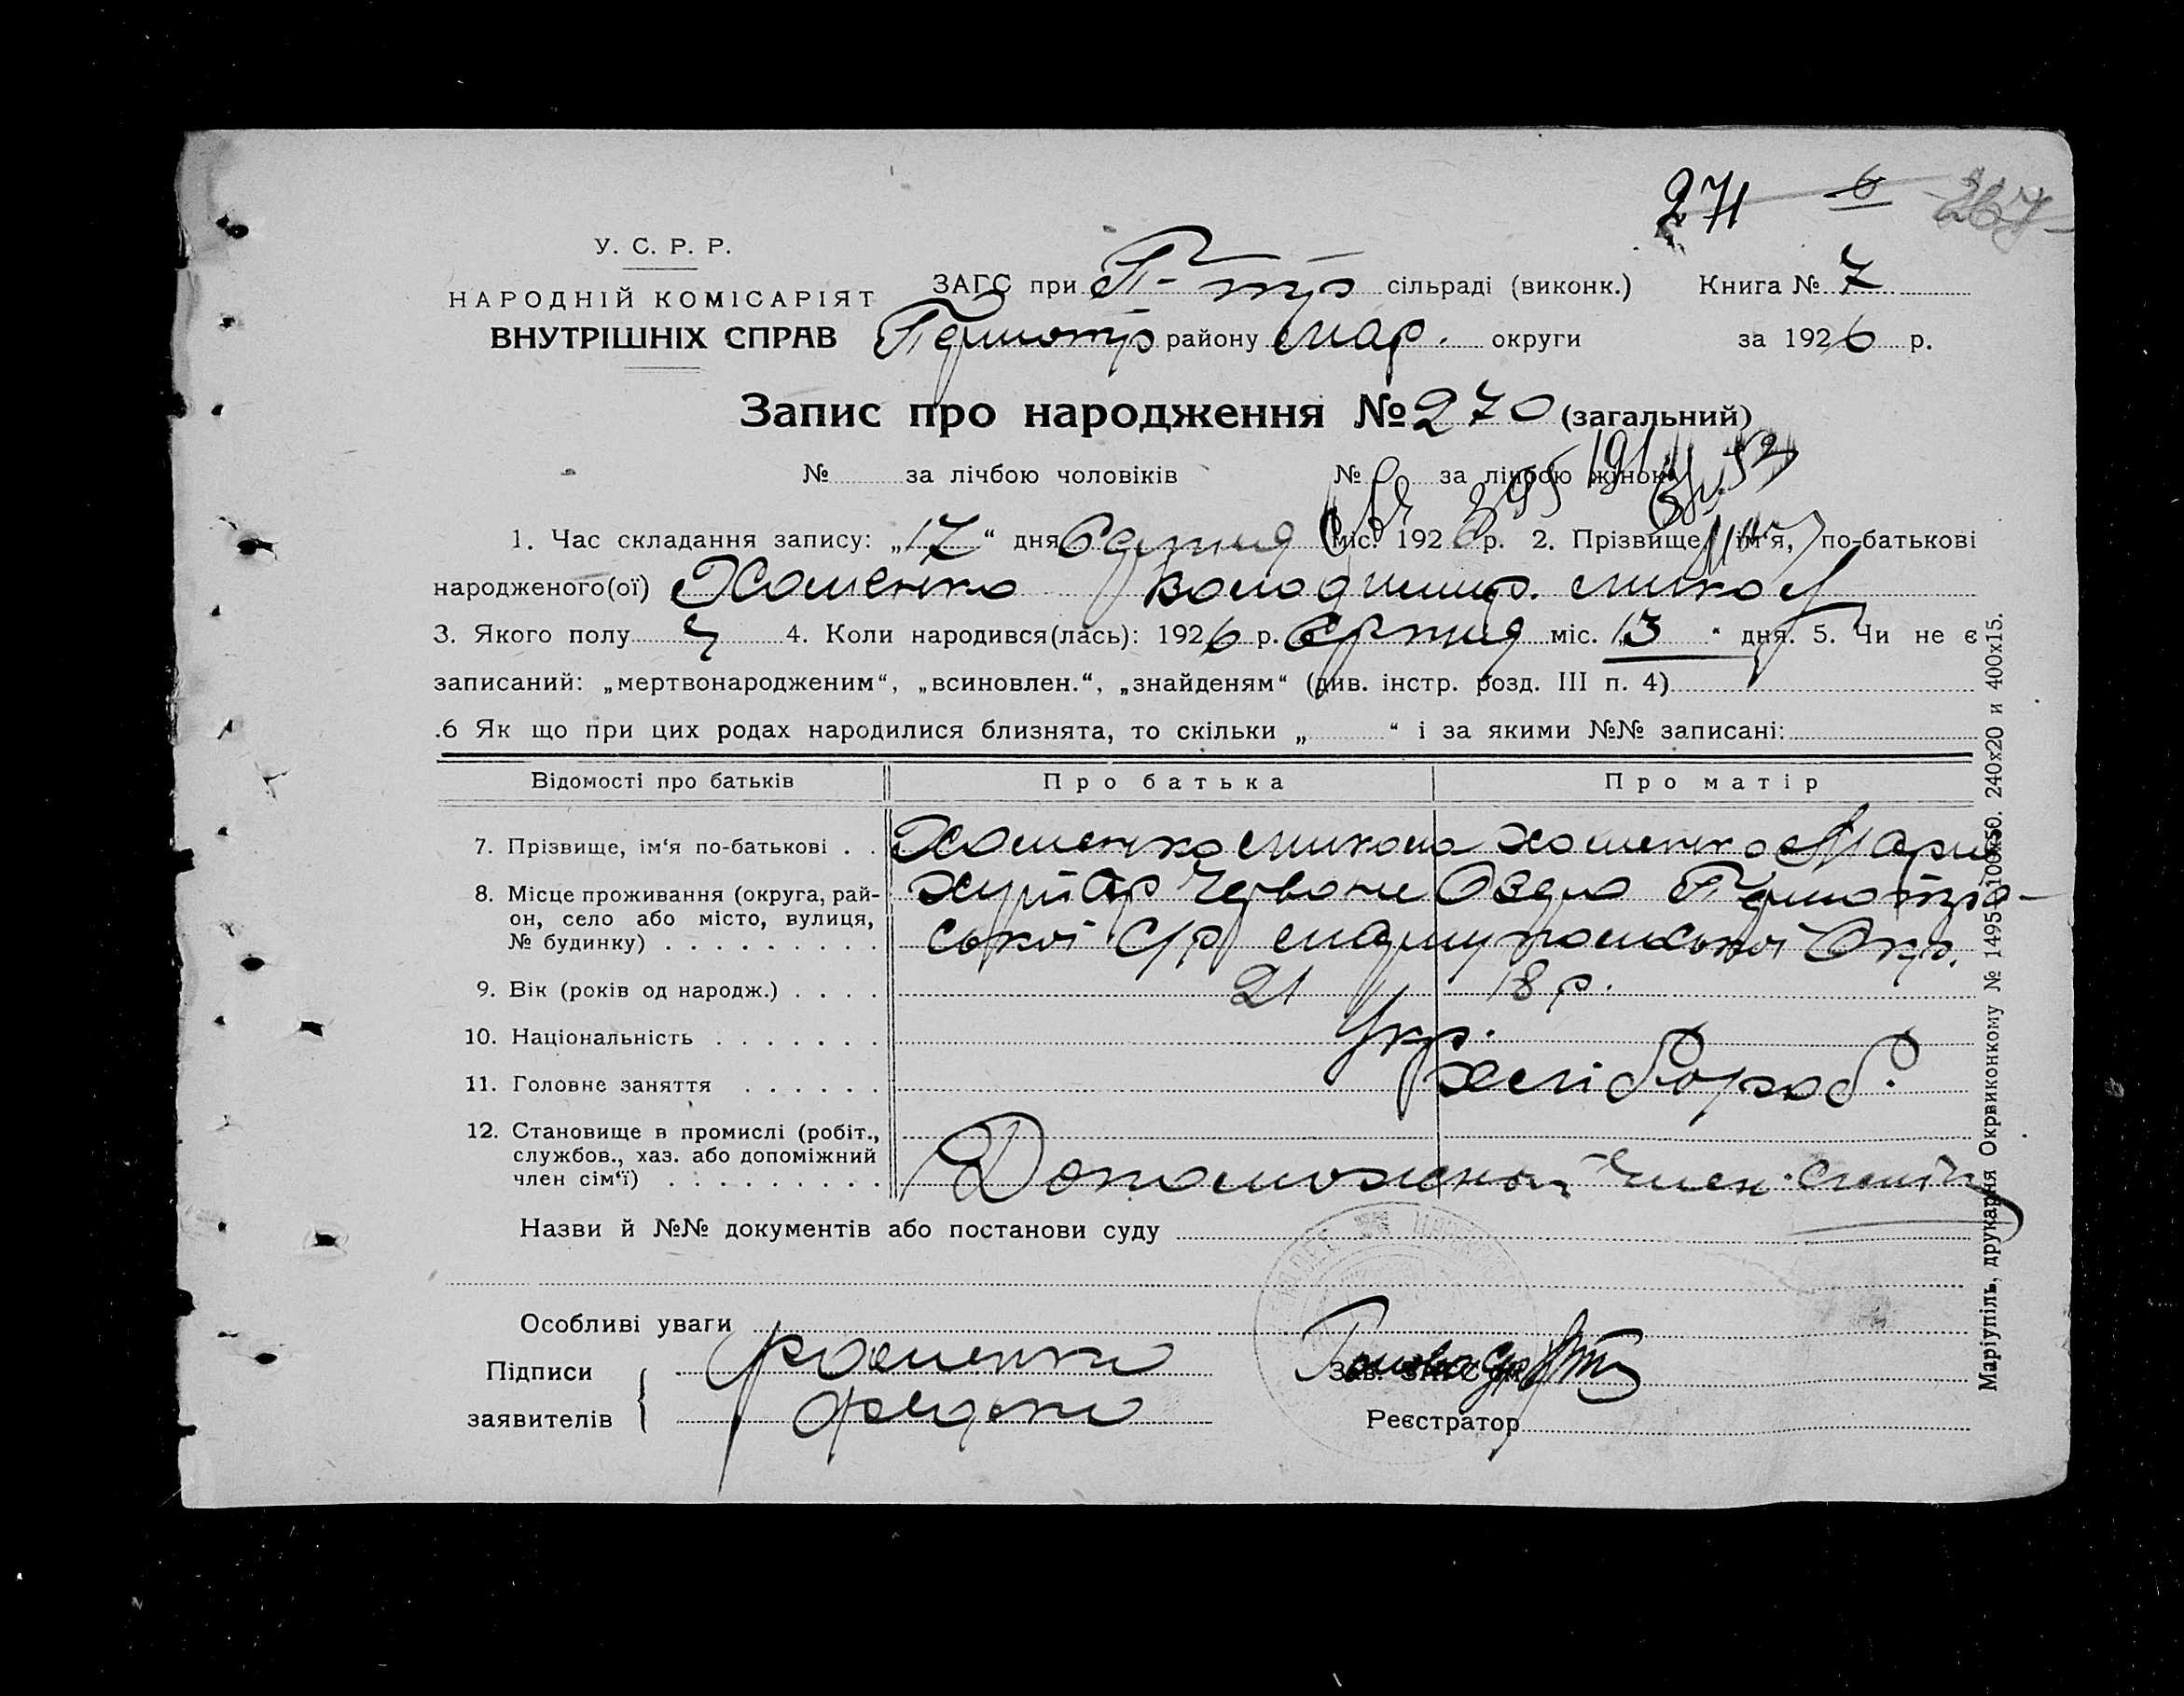 271 6 267
У. С. Р. Р.
НАРОДНІЙ КОМІСАРІЯТ
ВНУТРІШНІХ СПРАВ
ЗАГС при сільраді (виконк.) Книга № 7
району Мар. округи за 1926 р.
Запис про народження № 270 (загальний)
№ за лічбою чоловіків № за лічбою жінок
1. Час складання запису: „17“ дня Серпня міс. 1926 р. 2. Прізвище, ім‘я, по-батькові
народженого(ої) Хоменко Володимир. Микол
3. Якого полу Ч 4. Коли народився(лась): 1926 р. Серпня міс. „13“ дня. 5. Чи не є
записаний: „мертвонародженим“, „всиновлен.“, „знайденям“ (див. інстр. розд. III п. 4)
.6 Як що при цих родах народилися близнята, то скільки „ “ і за якими №№ записані:
Відомості про батьків Про батька Про матір
7. Прізвище, ім‘я по-батькові . . Хоменко Микола Хоменко Мария
8. Місце проживання (округа, рай- Хутір Червоне Озеро
он, село або місто, вулиця,
№ будинку) . . . . . . . . . ської С/р Маріупольської Окр.
9. Вік (років од народж.) . . . . 21 18 р.
10. Національність . . . . . . . Укр.
11. Головне заняття . . . . . . Хлібороб.
12. Становище в промислі (робіт.,
службов., хаз. або допоміжний
член сім‘ї) . . . . . . . . . Член Сімї
Назви й №№ документів або постанови суду
Особливі уваги
Підписи
заявителів
Голова
Реєстратор
Маріупіль, друкарня Окрвиконкому № 1495-100х50. 240х20 и 400х15.